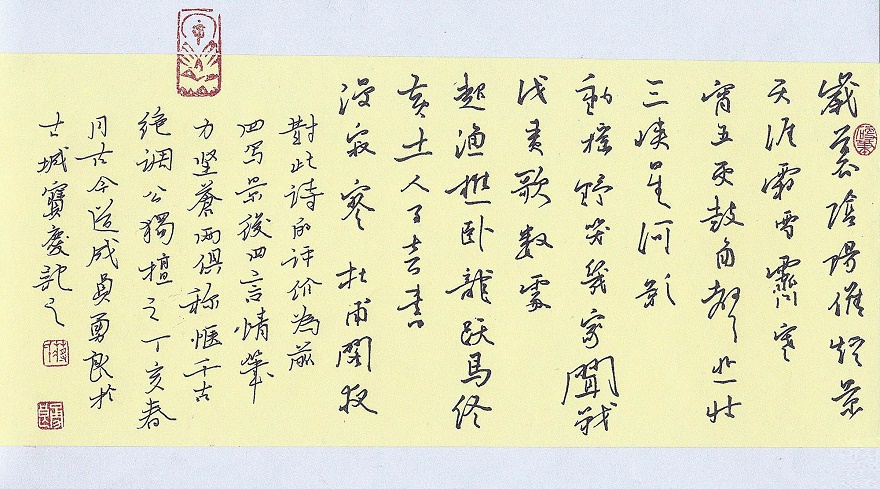 歲暮陰陽催短景
天涯霜雪霽寒
宵五更鼓角聲悲壯
三峽星河影
動搖野哭幾家聞戰
伐夷歌數處
起漁樵卧龍跃馬終
黄土人事音書
漫寂寥 杜甫閣夜
對此詩的评价為前
四写景後四言情筆
力坚蒼兩俱称惬千古
绝調公獨擅之丁亥春
月古今道成員勇良於
古城寶慶記之